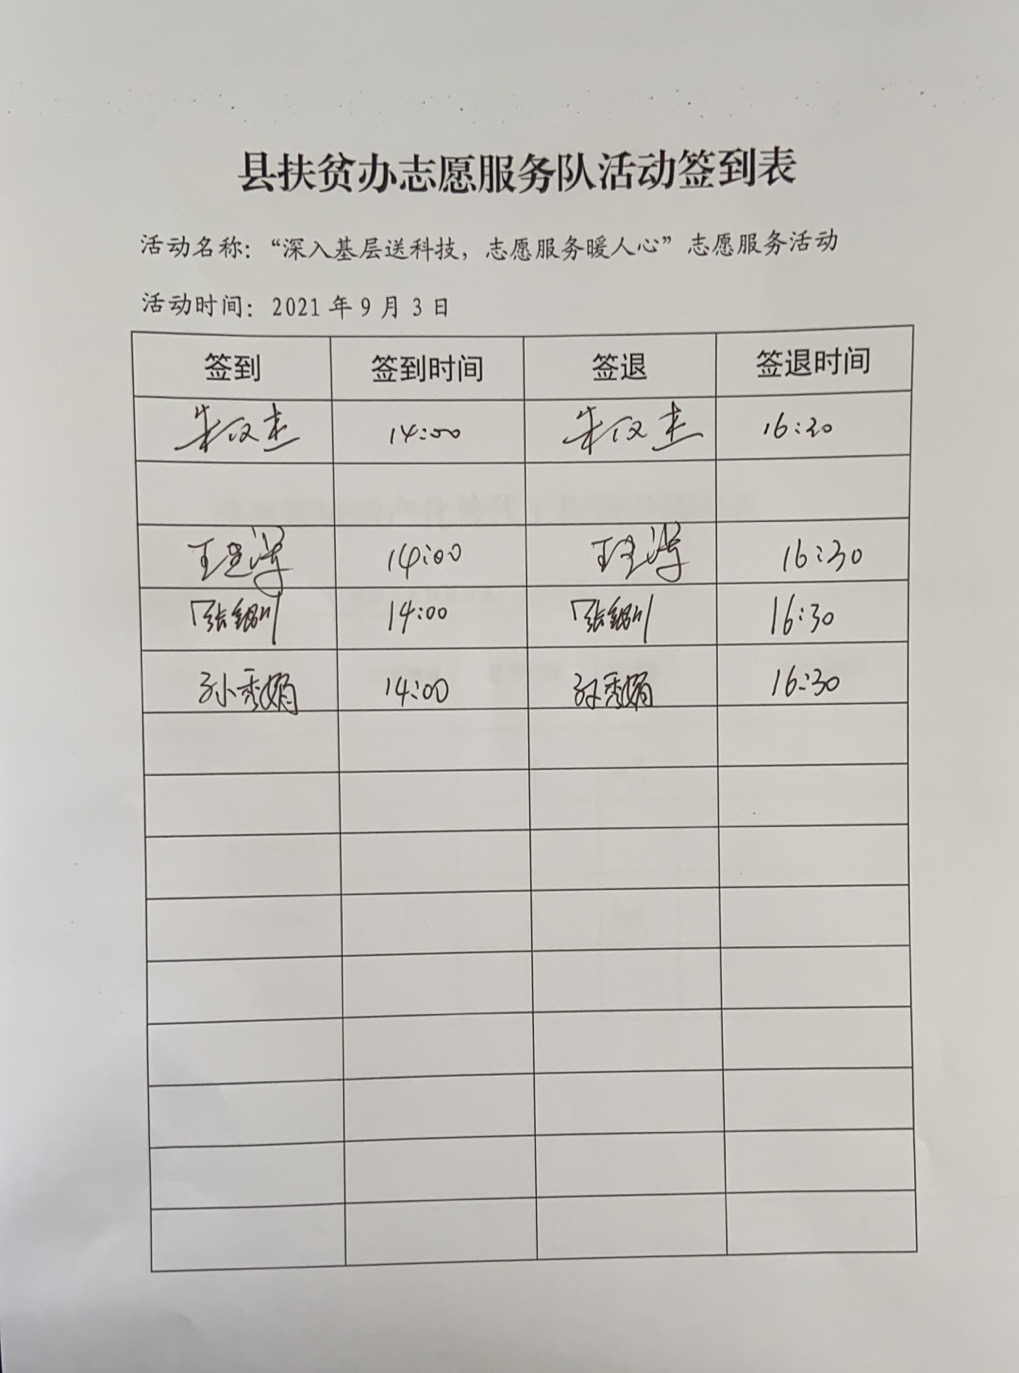 县扶贫办志愿服务队活动签到表
活动名称：“深入基层送科技，志愿服务暖人心”志愿服务活动
活动时间：2021年9月3日
签到 签到时间 签退 签退时间
朱汉杰 14:00 朱汉杰 16:30
14:00 16:30
张 14:00 张 16:30
孙秀娟 14:00 孙秀娟 16:30